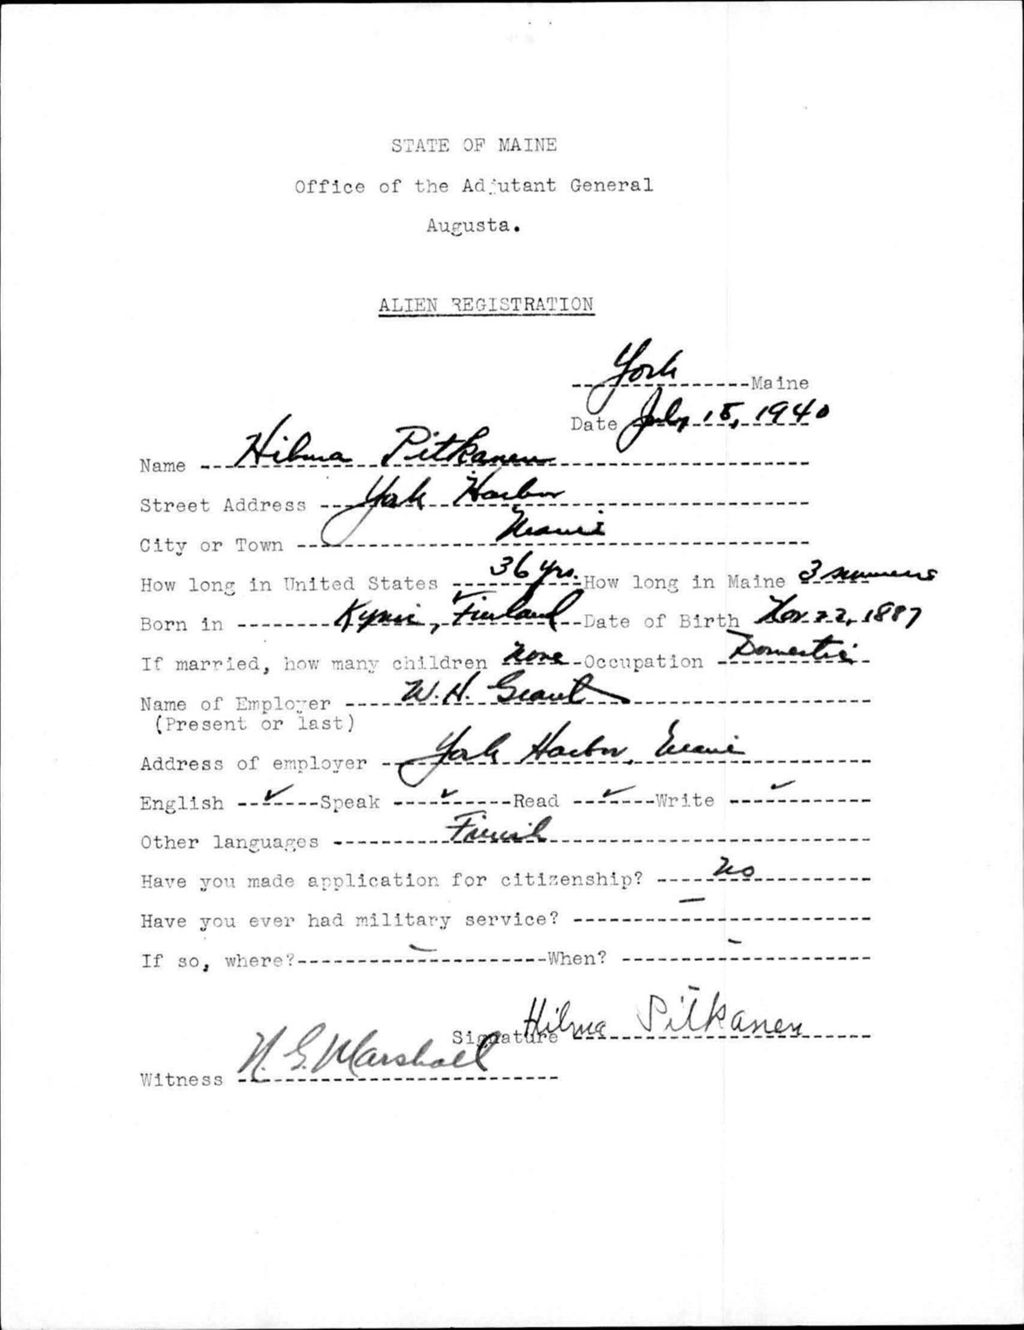 STATE OF MAINE
Office of the Adjutant General
Augusta.
ALIEN REGISTRATION
York Maine
Date July 15, 1940
Name Hilma Pitkanen
Street Address York Harbor
City or Town Maine
How long in United States 36 yrs. How long in Maine 3 summers
Born in Finland Date of Birth Nov. 22, 1887
If married, how many children None Occupation Domestic
Name of Employer W. H. Grant
(Present or last)
Address of employer York Harbor, Maine
English ✓ Speak ✓ Read ✓ Write ✓
Other languages Finnish
Have you made application for citizenship? No
Have you ever had military service? –
If so, where? – When? –
Signature Hilma Pitkanen
Witness N. G. Marshall